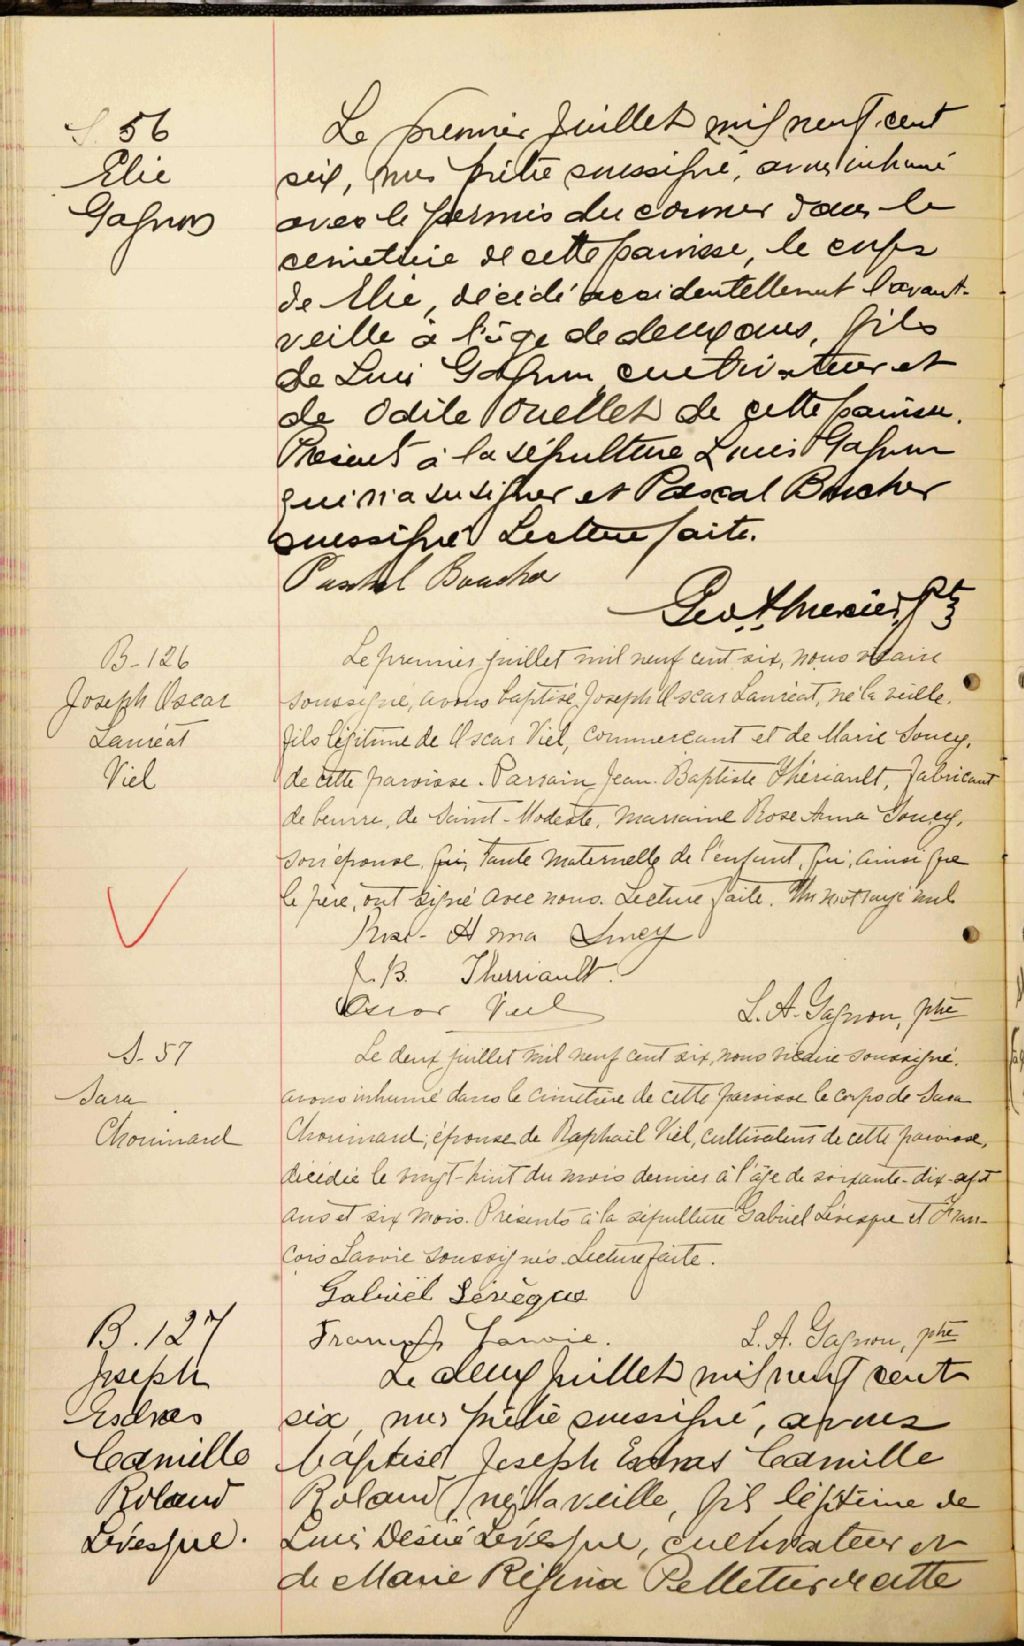 S. 56
Elie
Gagnon
Le premier Juillet mil neuf cent
six, nous prêtre soussigné, avons inhumé
avec le permis du coroner dans le
cimetière de cette paroisse, le corps
de Elie, décédé accidentellement l'avant-
veille à l'âge de deux ans, fils
de Louis Gagnon cultivateur et
de Odile Ouellet de cette paroisse.
Présents à la sépulture Louis Gagnon
qui n'a su signer et Pascal Boucher
soussigné Lecture faite.
Paschal Boucher
Geo
B-126
Joseph Oscar
Lauréat
Viel
Le premier juillet mil neuf cent six, nous vicaire
soussigné, avons baptisé Joseph Oscar Lauréat, né la veille,
fils légitime de Oscar Viel, commerçant et de Marie Soucy,
de cette paroisse. Parrain Jean-Baptiste Thériault, fabricant
de beurre, de Saint-Modeste, marraine Rose Anna Soucy,
son épouse, tante maternelle de l'enfant, qui, ainsi que
le père, ont signé avec nous. Lecture faite. Un mot rayé nul
Rose-Anna Soucy
J. B. Therriault.
Oscar Viel
L. A. Gagnon, ptre
S-57
Sara
Chouinard
Le deux juillet mil neuf cent six, nous vicaire soussigné,
avons inhumé dans le cimetière de cette paroisse le corps de Sara
Chouinard, épouse de Raphaël Viel, cultivateur de cette paroisse,
décédée le vingt-huit du mois dernier à l'âge de soixante-dix-sept
ans et six mois. Présents à la sépulture Gabriel Lévesque et Fran-
çois Lavoie soussignés. Lecture faite.
Gabriël Lévèque
François Lavoie.
L. A. Gagnon, ptre
B. 127
Joseph
Esdras
Camille
Roland
Lévesque.
Le deux Juillet mil neuf cent
six, nous prêtre soussigné, avons
baptisé Joseph Esdras Camille
Roland, né la veille, fils légitime de
Louis Désiré Lévesque, cultivateur et
de Marie Régina Pelletier de cette